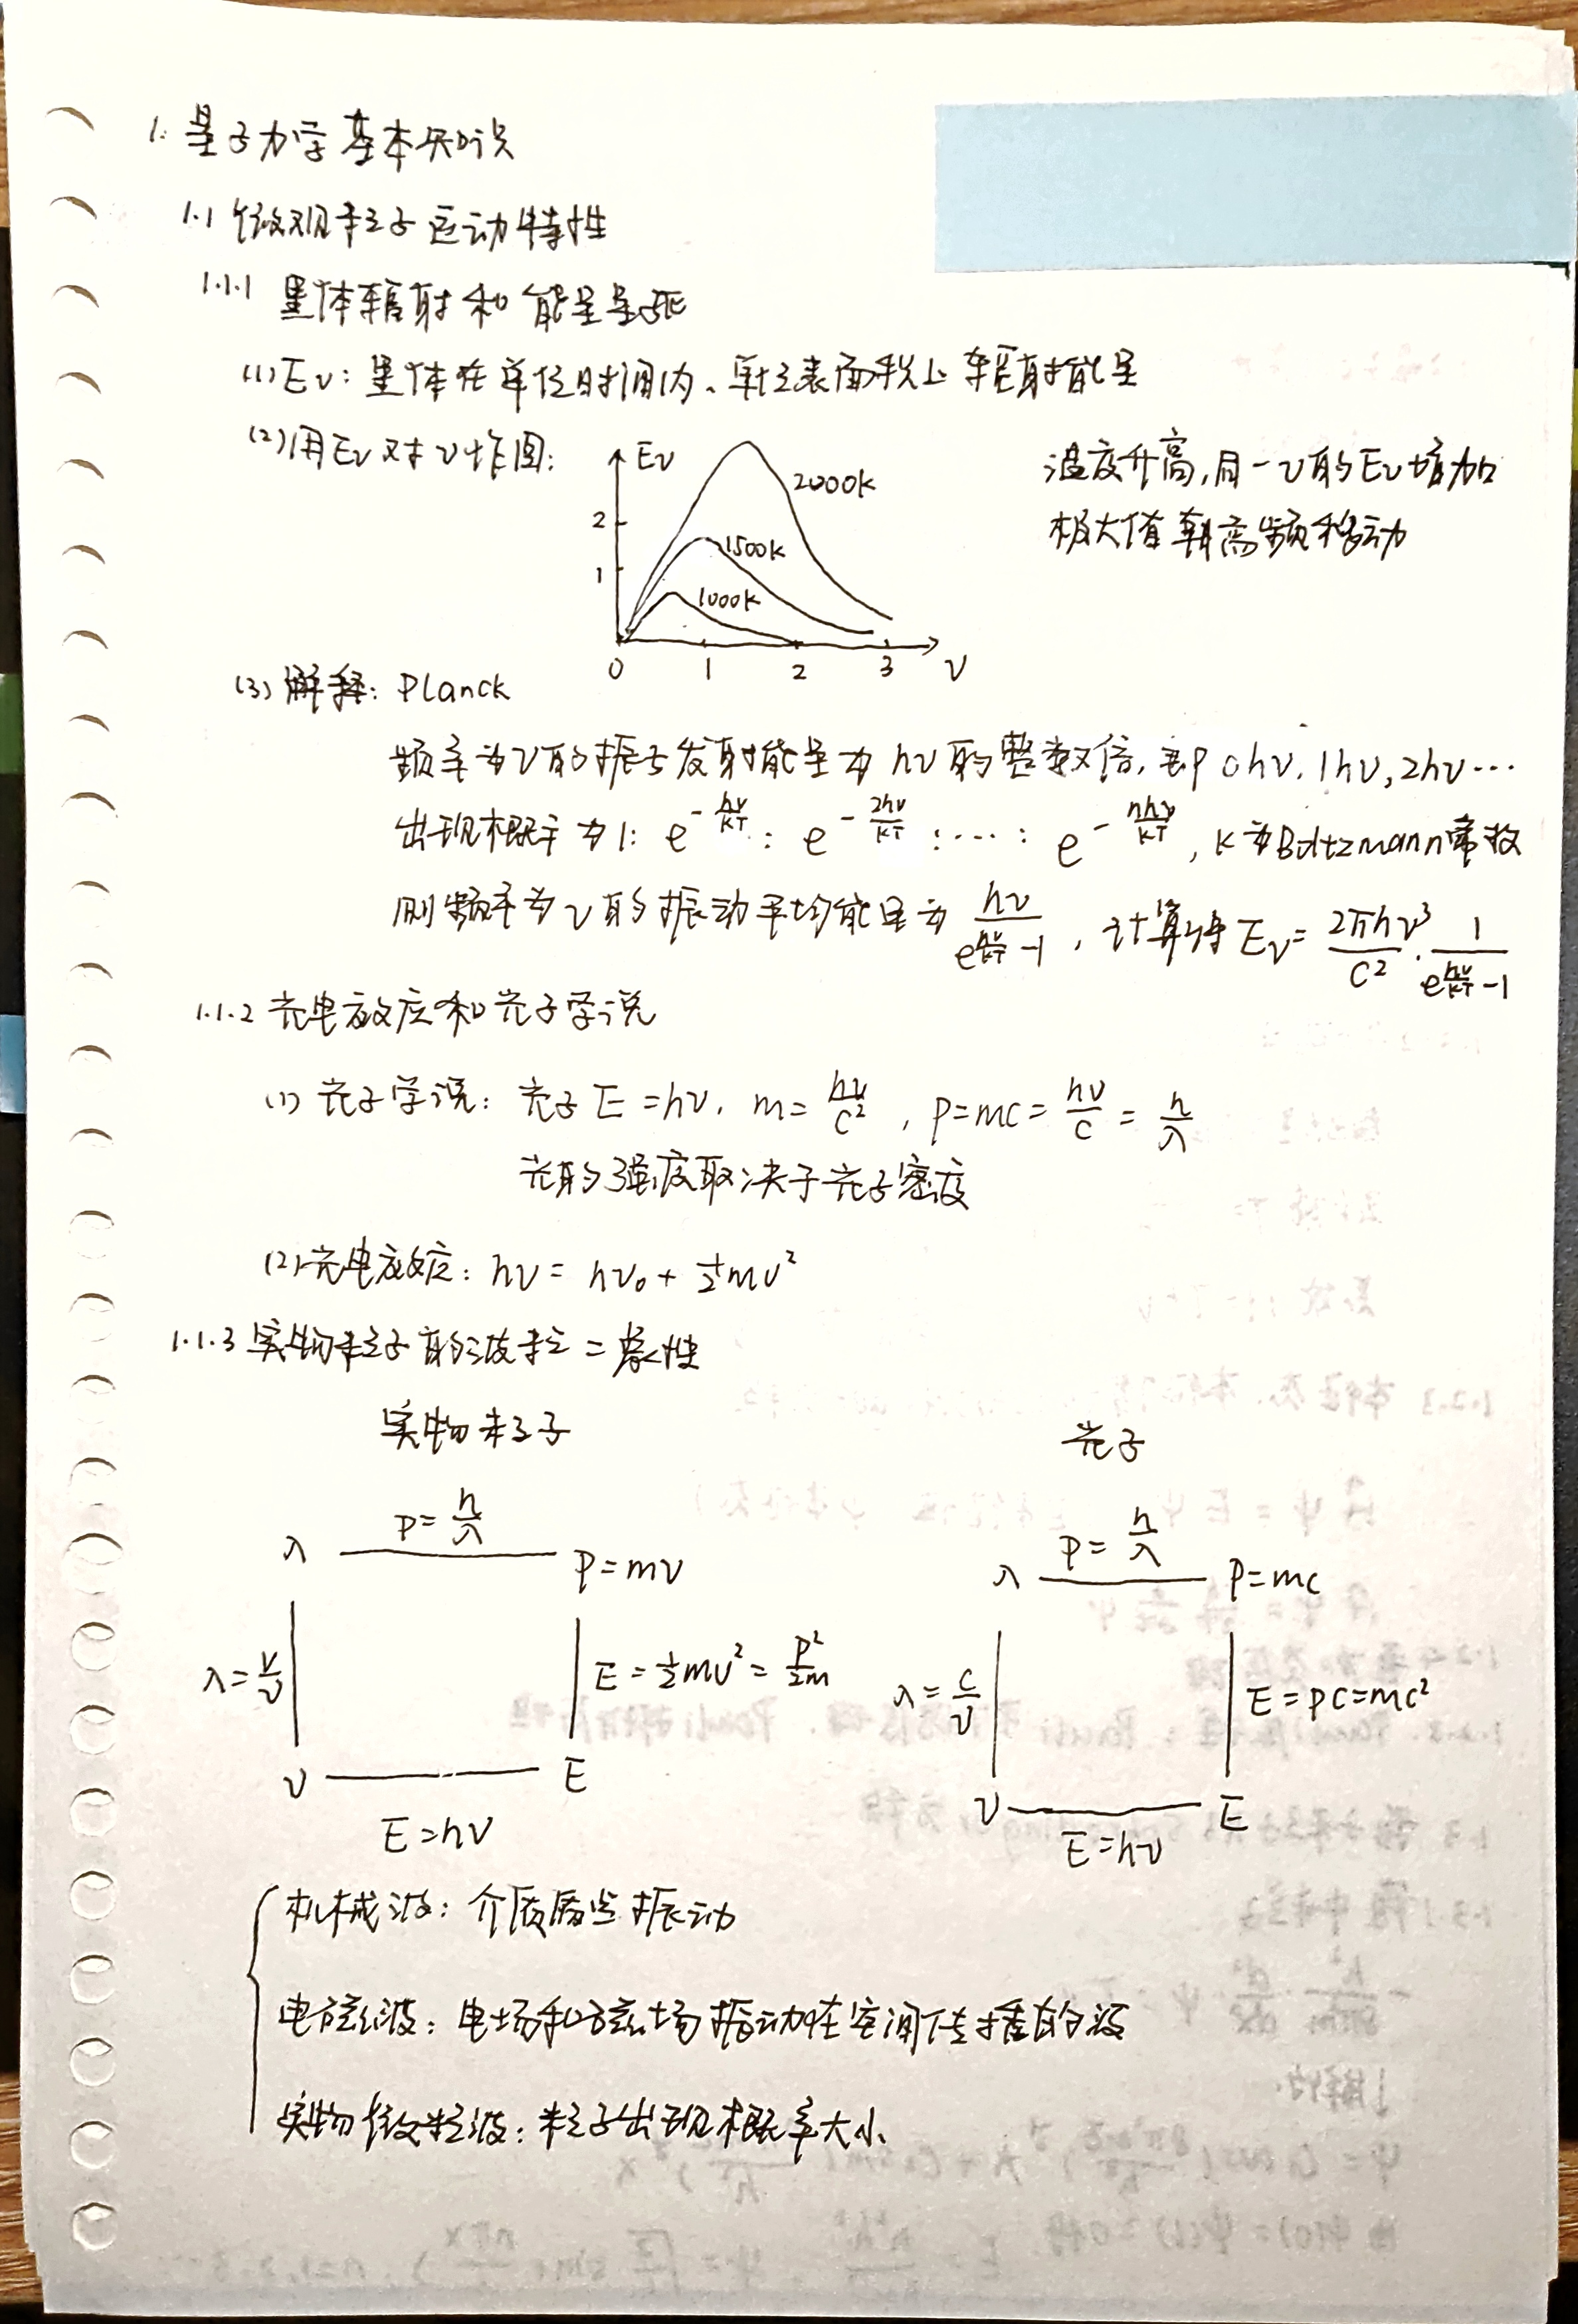 1. 量子力学基本知识
1.1 微观粒子运动特性
1.1.1 黑体辐射和能量量子化
(1) Eν: 黑体在单位时间内、单位表面积上辐射能量
(2) 用Eν对ν作图:
Eν
2000K
2
1500K
1
1000K
0 1 2 3 ν
温度升高,同一ν的Eν增加
极大值朝高频移动
(3) 解释: Planck
频率为ν的振子发射能量为hν的整数倍,即0hν, 1hν, 2hν…
出现概率为1: e^{-hν/kT} : e^{-2hν/kT} : … : e^{-nhν/kT}, k为Boltzmann常数
则频率为ν的振动平均能量为 hν/(e^{hν/kT}-1), 计算得Eν= 2πhν³/c² · 1/(e^{hν/kT}-1)
1.1.2 光电效应和光子学说
(1) 光子学说: 光子E=hν, m= hν/c², P=mc= hν/c = h/λ
光的强度取决于光子密度
(2) 光电效应: hν= hν₀+ ½mv²
1.1.3 实物粒子的波粒二象性
实物粒子
λ P= h/λ P=mv
λ= v/ν E=½mv²= P²/2m
ν E
E=hν
光子
λ P= h/λ P=mc
λ= c/ν E=pc=mc²
ν E
E=hν
机械波: 介质质点振动
电磁波: 电场和磁场振动在空间传播的波
实物微粒波: 粒子出现概率大小